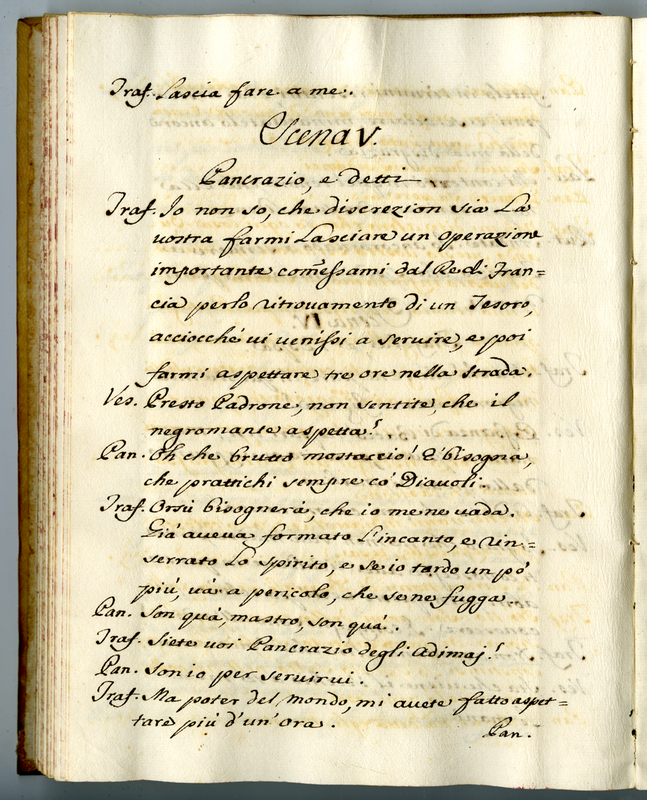 Traf. Lascia fare a me.
Scena V.
Pancrazio, e detti
Traf. Io non so, che discrezion sia La
vostra farmi Lasciare un operazione
importante com̃essami dal Re di Fran=
cia perlo ritrovamento di un Tesoro,
acciocché vi venissi a servire, e poi
farmi aspettare tre ore nella strada.
Ves. Presto Padrone, non sentite, che il
negromante aspetta?
Pan. Oh che brutto mostaccio! È bisogna,
che prattichi sempre co' Diavoli.
Traf. Orsù bisognerà, che io me ne vada.
Già aveva formato L'incanto, e rin=
serrato Lo spirito, e se io tardo un pò
più, và a pericolo, che se ne fugga
Pan. Son quà, mastro, son quà.
Traf. Siete voi Pancrazio degli Adimaj?
Pan. Son io per servirvi.
Traf. Ma poter del mondo, mi avete fatto aspet=
tare più d'un'ora.
Pan.